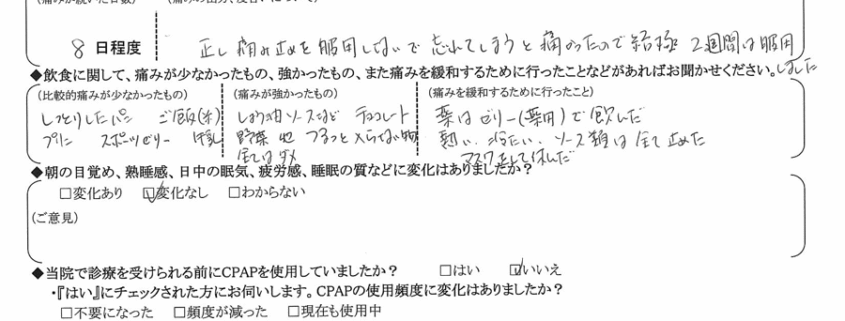 (痛みが続いた日数)
8 日程度 正し痛み止めを服用しないで忘れてしまうと痛かったので結極 2週間は服用
しました
◆飲食に関して、痛みが少なかったもの、強かったもの、また痛みを緩和するために行ったことなどがあればお聞かせください。
(比較的痛みが少なかったもの) (痛みが強かったもの) (痛みを緩和するために行ったこと)
しっとりしたパン ご飯(米) しょう油 ソースなど チョコレート 薬はゼリー(薬用)で飲んだ
プリン スポーツゼリー 牛乳 野菜 他 つるっと入らない物 熱い、冷たい、ソース類は全て止めた
全てはダメ マスクをして休んだ
◆朝の目覚め、熟睡感、日中の眠気、疲労感、睡眠の質などに変化はありましたか？
□変化あり ☑変化なし □わからない
(ご意見)
◆当院で診療を受けられる前にCPAPを使用していましたか？ □はい ☑いいえ
・『はい』にチェックされた方にお伺いします。CPAPの使用頻度に変化はありましたか？
□不要になった □頻度が減った □現在も使用中